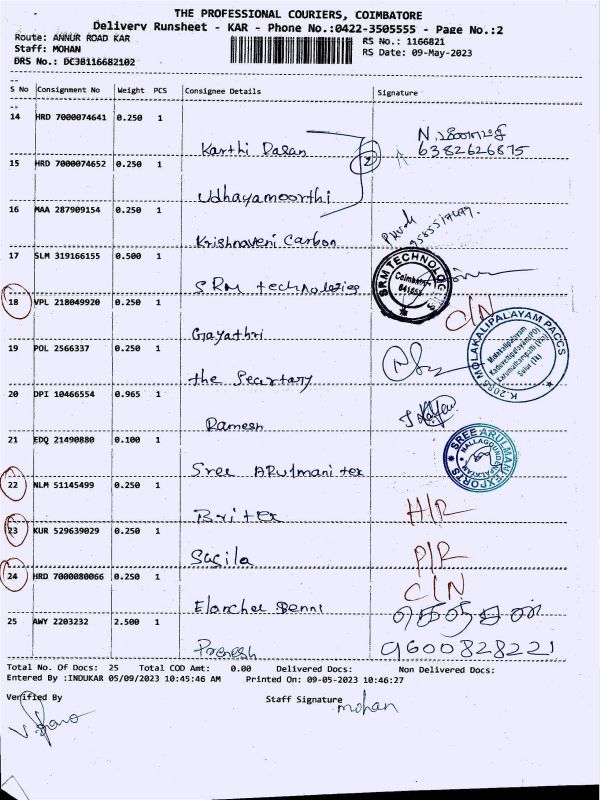 THE PROFESSIONAL COURIERS, COIMBATORE
Delivery Runsheet - KAR - Phone No.:0422-3505555 - Page No.:2
Route: ANNUR ROAD KAR
RS No.: 1166821
Staff: MOHAN
RS Date: 09-May-2023
DRS No.: DC3B116682102
S No Consignment No Weight PCS Consignee Details Signature
14 HRD 7000074641 0.250 1
Karthi Dasan
6382626875
2
15 HRD 7000074652 0.250 1
Udhayamoorthi
16 MAA 287909154 0.250 1
Krishnaveni Carbon
17 SLM 319166155 0.500 1
SRM technologies
SRM TECHNOLOGIES
Coimbatore
18 VPL 218049920 0.250 1
Gayathri
C/N
19 POL 2566337 0.250 1
the Secartary
K.2085 MOLAKALIPALAYAM PACCS
Molakalipalayam
Sulur (Tk)
20 DPI 10466554 0.965 1
Ramesh
21 EDQ 21490880 0.100 1
Sree ARulmani tex
SREE ARULMANI EXPORTS
22 NLM 51145499 0.250 1
Britex
H/R
23 KUR 529639029 0.250 1
Susila
P/R
24 HRD 7000080066 0.250 1
C/N
25 AWY 2203232 2.500 1
9600828221
Total No. Of Docs: 25 Total COD Amt: 0.00 Delivered Docs: Non Delivered Docs:
Entered By :INDUKAR 05/09/2023 10:45:46 AM Printed On: 09-05-2023 10:46:27
Verified By
Staff Signature
mohan